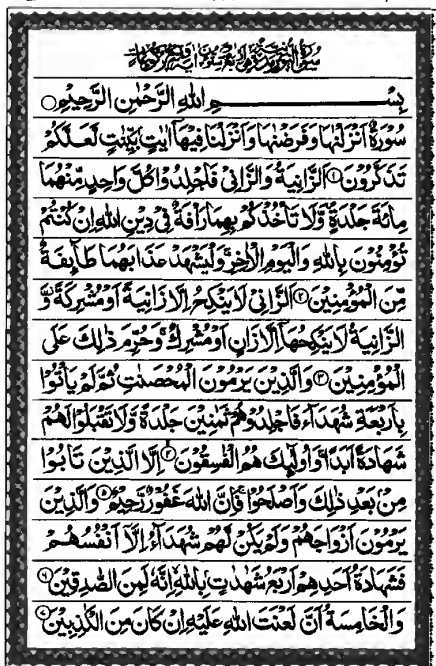 بِسْــــــمِ اللهِ الرَّحْمٰنِ الرَّحِيْمِ ○
سُوْرَةٌ اَنْزَلْنٰهَا وَفَرَضْنٰهَا وَاَنْزَلْنَا فِيْهَاۤ اٰيٰتٍۭ بَيِّنٰتٍ لَّعَلَّكُمْ
تَذَكَّرُوْنَ ۱ اَلزَّانِيَةُ وَالزَّانِيْ فَاجْلِدُوْا كُلَّ وَاحِدٍ مِّنْهُمَا
مِائَةَ جَلْدَةٍ ۪ وَّلَا تَاْخُذْكُمْ بِهِمَا رَاْفَةٌ فِيْ دِيْنِ اللهِ اِنْ كُنْتُمْ
تُؤْمِنُوْنَ بِاللهِ وَالْيَوْمِ الْاٰخِرِ ۚ وَلْيَشْهَدْ عَذَابَهُمَا طَآىِٕفَةٌ
مِّنَ الْمُؤْمِنِيْنَ ۲ اَلزَّانِيْ لَا يَنْكِحُ اِلَّا زَانِيَةً اَوْ مُشْرِكَةً ۫ وَّ
الزَّانِيَةُ لَا يَنْكِحُهَاۤ اِلَّا زَانٍ اَوْ مُشْرِكٌ ۚ وَحُرِّمَ ذٰلِكَ عَلَى
الْمُؤْمِنِيْنَ ۳ وَالَّذِيْنَ يَرْمُوْنَ الْمُحْصَنٰتِ ثُمَّ لَمْ يَاْتُوْا
بِاَرْبَعَةِ شُهَدَآءَ فَاجْلِدُوْهُمْ ثَمٰنِيْنَ جَلْدَةً وَّلَا تَقْبَلُوْا لَهُمْ
شَهَادَةً اَبَدًا ۚ وَاُولٰٓىِٕكَ هُمُ الْفٰسِقُوْنَ ۴ اِلَّا الَّذِيْنَ تَابُوْا
مِنْۢ بَعْدِ ذٰلِكَ وَاَصْلَحُوْا ۚ فَاِنَّ اللهَ غَفُوْرٌ رَّحِيْمٌ ۵ وَالَّذِيْنَ
يَرْمُوْنَ اَزْوَاجَهُمْ وَلَمْ يَكُنْ لَّهُمْ شُهَدَآءُ اِلَّاۤ اَنْفُسُهُمْ
فَشَهَادَةُ اَحَدِهِمْ اَرْبَعُ شَهٰدٰتٍۭ بِاللهِ ۙ اِنَّهٗ لَمِنَ الصّٰدِقِيْنَ ۶
وَالْخَامِسَةُ اَنَّ لَعْنَتَ اللهِ عَلَيْهِ اِنْ كَانَ مِنَ الْكٰذِبِيْنَ ۷